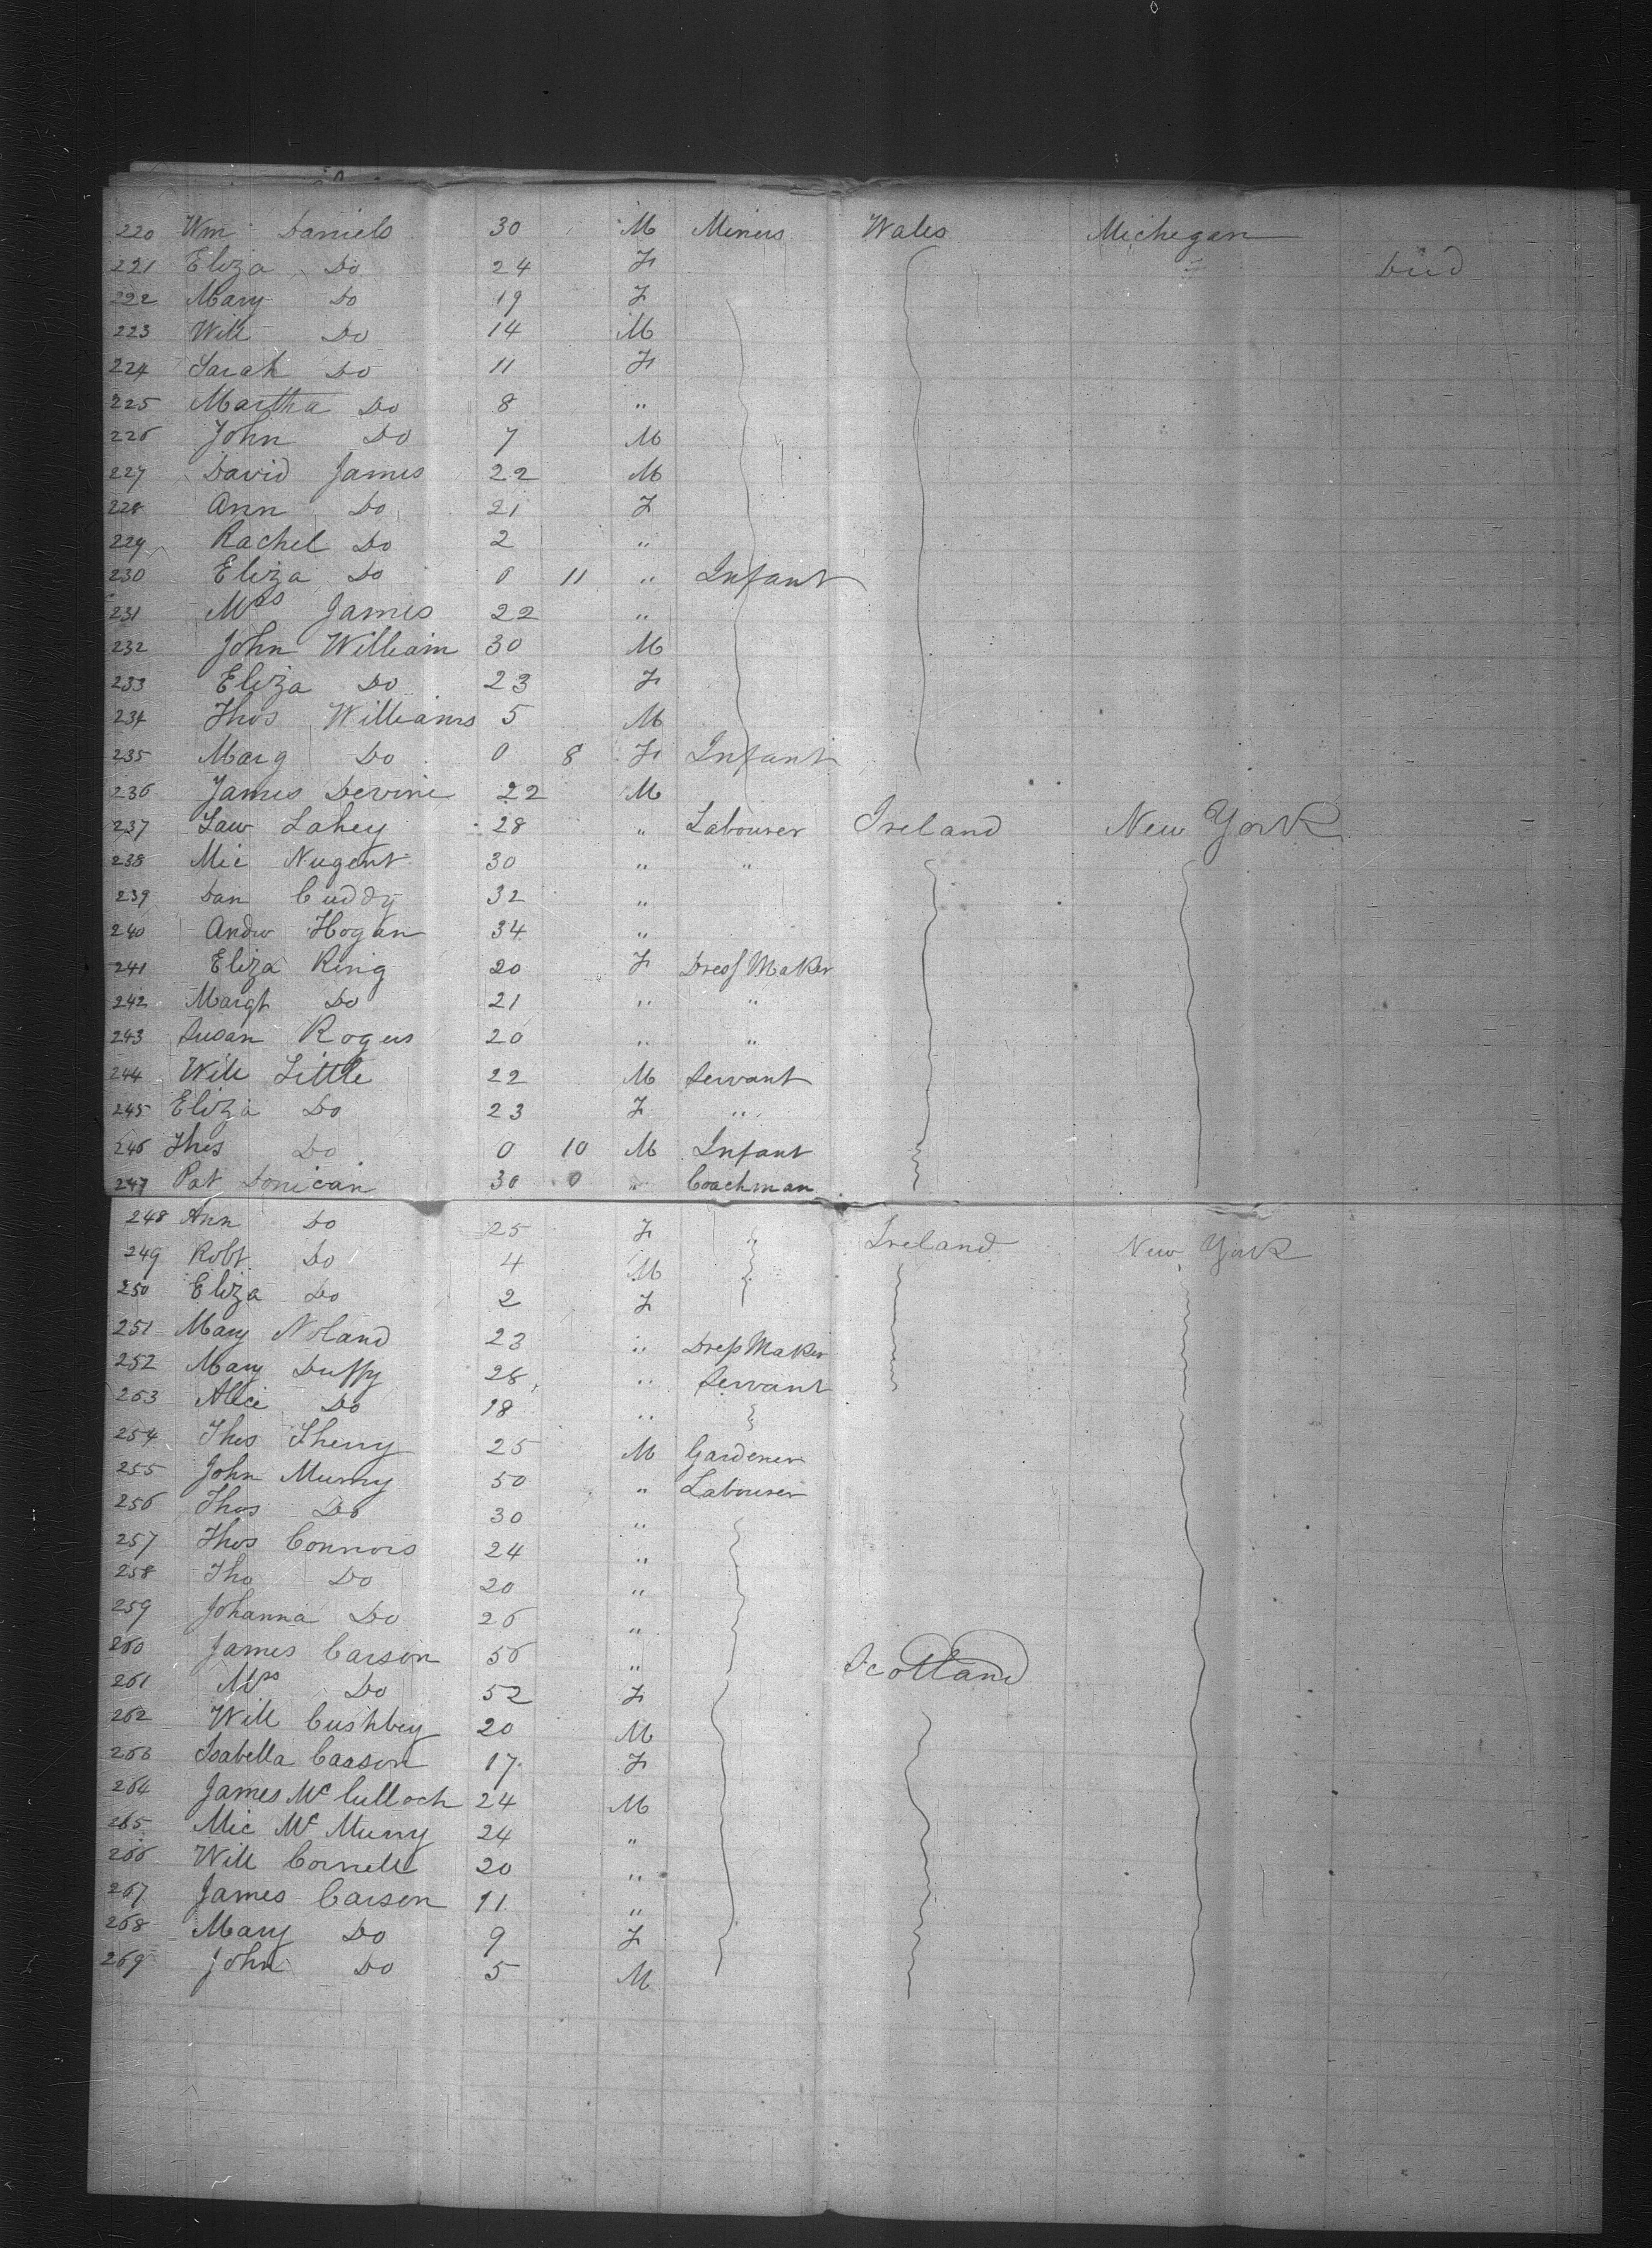 220 Wm Daniels 30 M Miners Wales Michegan
221 Eliza Do 24 F Died
222 Mary Do 19 F
223 Will Do 14 M
224 Sarah Do 11 F
225 Martha Do 8 "
226 John Do 7 M
227 David James 22 M
228 Ann Do 21 F
229 Rachel Do 2 "
230 Eliza Do 0 11 " Infant
231 Mrs James 22 "
232 John William 30 M
233 Eliza Do 23 F
234 Thos Williams 5 M
235 Marg Do 0 8 F Infant
236 James Devine 22 M
237 Law Lahey 28 " Labourer Ireland New York
238 Mic Nugent 30 " "
239 Dan Cuddy 32 "
240 Andw Hogan 34 "
241 Eliza King 20 F Dress Maker
242 Margt Do 21 " "
243 Susan Rogers 20 " "
244 Will Little 22 M Servant
245 Eliza Do 23 F "
246 Thos Do 0 10 M Infant
247 Pat Donican 30 0 " Coachman
248 Ann Do 25 F " Ireland New York
249 Robt Do 4 M
250 Eliza Do 2 F
251 Mary Noland 23 " Dress Maker
252 Mary Duffy 28 " Servant
253 Alice Do 18 "
254 Thos Sherry 25 M Gardener
255 John Murry 50 " Labourer
256 Thos Do 30 "
257 Thos Connors 24 "
258 Tho Do 20 "
259 Johanna Do 26 "
260 James Carson 56 " Scotland
261 Mrs Do 52 F
262 Will Cushbey 20 M
263 Isabella Caason 17 F
264 James Mc Culloch 24 M
265 Mic Mc Murry 24 "
266 Will Cornell 20 "
267 James Carson 11 "
268 Mary Do 9 F
269 John Do 5 M